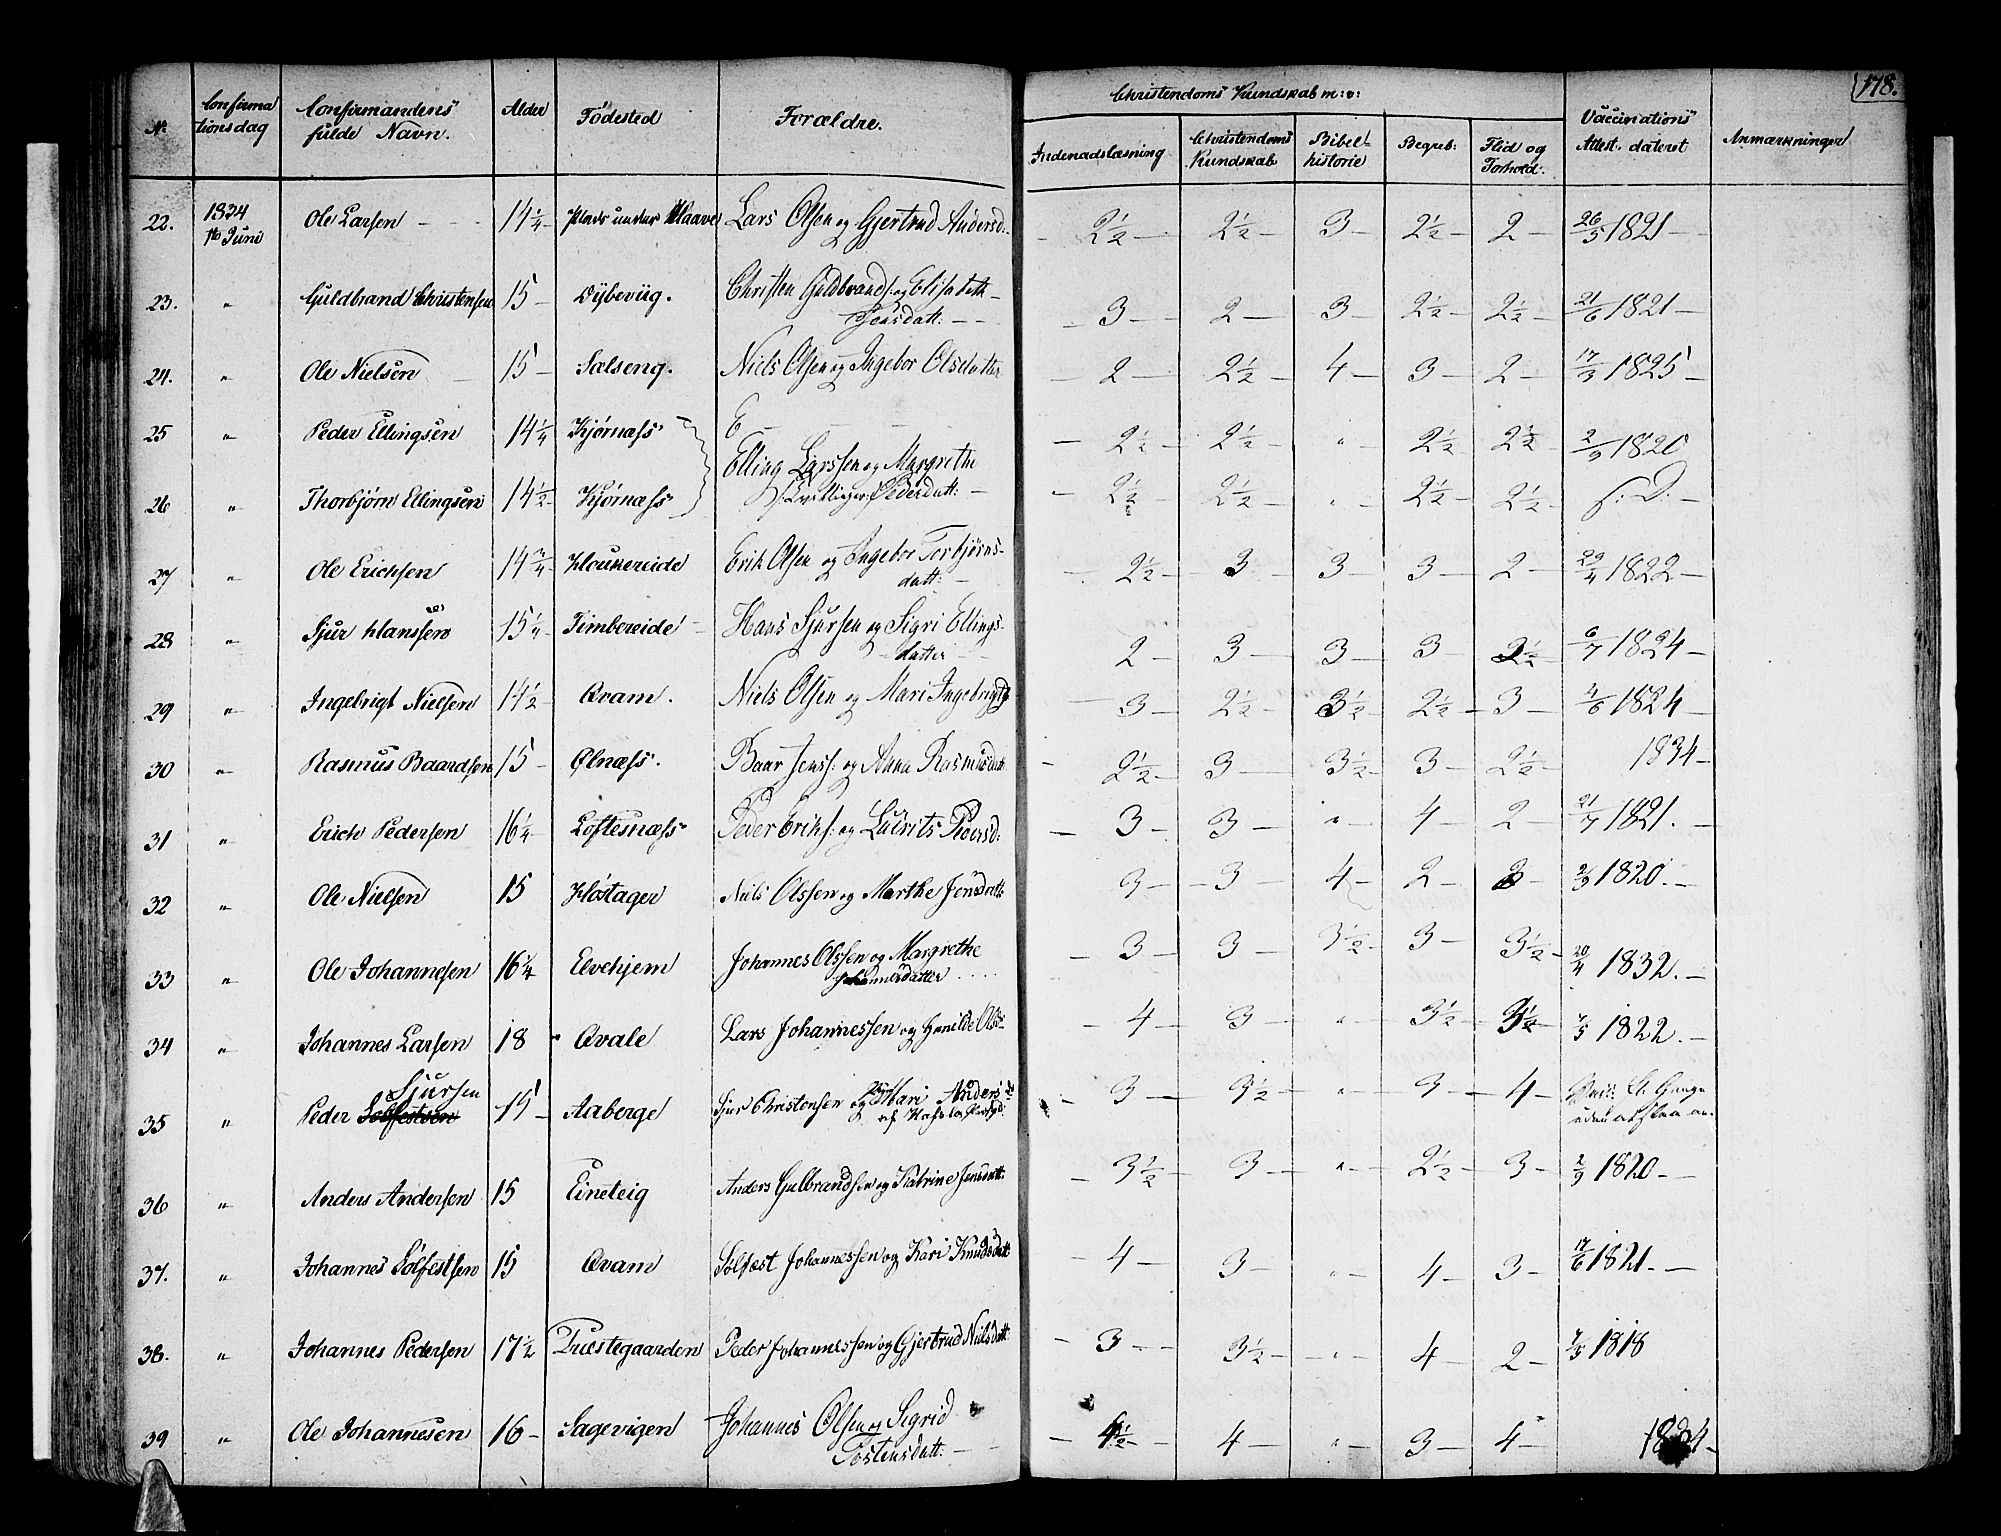 178.
No. Confirmationsdag Confirmandens fulde Navn. Alder Födested Forældre. Christendoms Kundskab m: v: Vaccinations Attest. dateret Anmærkninger
Indenadslæsning Christendoms Kundskab Bibelhistorie Begreb: Flid og Forhold.
22. 1834 16 Juni Ole Larsen 14 1/4 Plads under Lars Olsen og Gjertrud Andersd: 2 1/2 2 1/2 3 2 1/2 2 26/5 1821
23. " Guldbrand Christensen 15 Dybeviig. Christen Guldbrands: og Elisabeth Jensdatt: 3 2 3 2 1/2 2 1/2 21/6 1821
24. " Ole Nielsen 15 Sælseng. Niels Olsen og Ingebor Olsdatter 2 2 1/2 4 3 2 17/3 1825
25 " Peder Ellingsen 14 1/4 Kjørnæss E 2 1/2 2 1/2 " 2 1/2 2 1/2 2/9 1820
Elling Larssen og Margrethe Pedersdatt:
26 " Thorbjörn Ellingsen 14 1/2 Kjörnæss 2 1/2 2 1/2 " 2 1/2 2 1/2 s: D:
27 " Ole Erichsen 14 3/4 Kloukereide Erik Olsen og Ingebor Torbjörns-datt: 2 1/2 3 3 3 2 22/4 1822
28 " Sjur Hanssen 15 1/4 Timbereide Hans Sjursen og Sigri Ellings-datter 2 3 3 3 2 1/2 6/7 1824
29 " Ingebrigt Nielsen 14 1/2 Qvam. Niels Olsen og Mari Ingebrigtsd 3 2 1/2 3 1/2 2 1/2 3 2/6 1824
30 " Rasmus Baardsen 15 Ølnæss. Baar Jenss: og Anna Rasmusdatt 2 1/2 3 3 1/2 3 2 1/2 1834
31 " Erich Pedersen 16 1/4 Loftesnæss Peder Eriks: og 3 3 " 4 2 21/7 1821.
32 " Ole Nielsen 15 Klöstager Niels Olssen og Marthe Jensdatt: 3 3 4 2 3 2/9 1820.
33 " Ole Johannesen 16 1/4 Elvehjem Johannes Olssen og Margrethe Johannesdatter 3 3 3 1/2 3 3 1/2 20/4 1832.
34 " Johannes Larsen 18 Qvale Lars Johannessen og 4 3 " 3 1/2 3 1/2 7/5 1822.
35 " Peder Sjursen 15 Aaberge Sjur Christensen og Mari Anders 3 3 1/2 " 3 4
36 " Anders Andersen 15 Eineteig Anders Gulbrandsen og Katrine Jensdatt: 3 1/2 3 " 2 1/2 3 2/9 1820
37. " Johannes Sölfestsen 15 Qvam Sölfest Johannessen og Kari Knudsdatt 4 3 " 4 3 17/6 1821.
38. " Johannes Pedersen 17 1/2 Præstegaarden Peder Johannessen og Gjertrud Nielsdatt: 3 3 1/2 " 4 2 7/5 1818
39 " Ole Johannesen 16 Sagevigen Johannes Olsen og Segrid Tostensdatt: 4 1/2 4 " 3 4